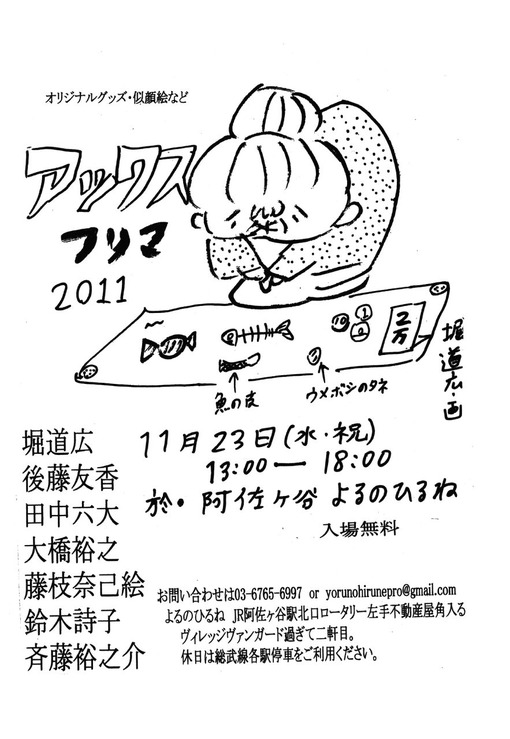 オリジナルグッズ・似顔絵など
アックス
フリマ
2011
10
1
2万
魚の皮
ウメボシのタネ
堀道広・画
堀道広
後藤友香
田中六大
大橋裕之
藤枝奈己絵
鈴木詩子
斉藤裕之介
11月23日(水・祝)
13:00ー18:00
於・阿佐ヶ谷 よるのひるね
入場無料
お問い合わせは03-6765-6997 or yorunohirunepro@gmail.com
よるのひるね JR阿佐ヶ谷駅北口ロータリー左手不動産屋角入る
ヴィレッジヴァンガード過ぎて二軒目。
休日は総武線各駅停車をご利用ください。